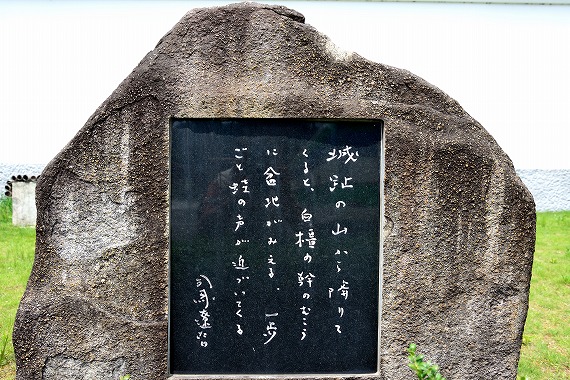 城趾の山から降りて
くると、白橿の幹のむこう
に盆地がみえる、一歩
ごと蛙の声が近づいてくる
司馬遼太郎